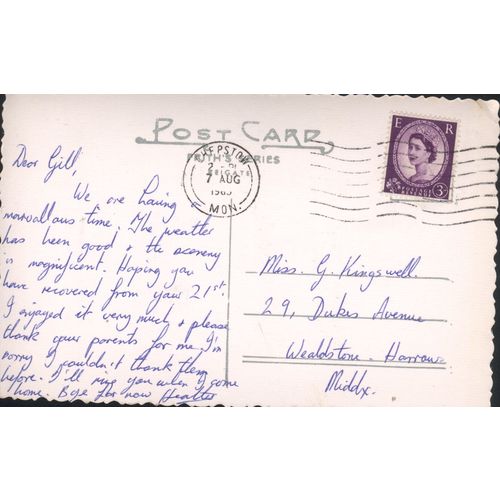 POST CARD
FRITH'S SERIES
REIGATE
CHEPSTOW
7 AUG
MON.
E R
POSTAGE REVENUE
3D
Dear Gill,
We are having
marvallous time. The weather
has been good & the scenery
is magnificent. Hoping you
have recovered from your 21st.
I enjoyed it very much & please
thank your parents for me. I'm
sorry I couldn't thank them
before. I'll ring you when I come
home. Bye for now Heather
Miss. G. Kingswell.
29, Dukes Avenue
Wealdstone. Harrow
Middx.